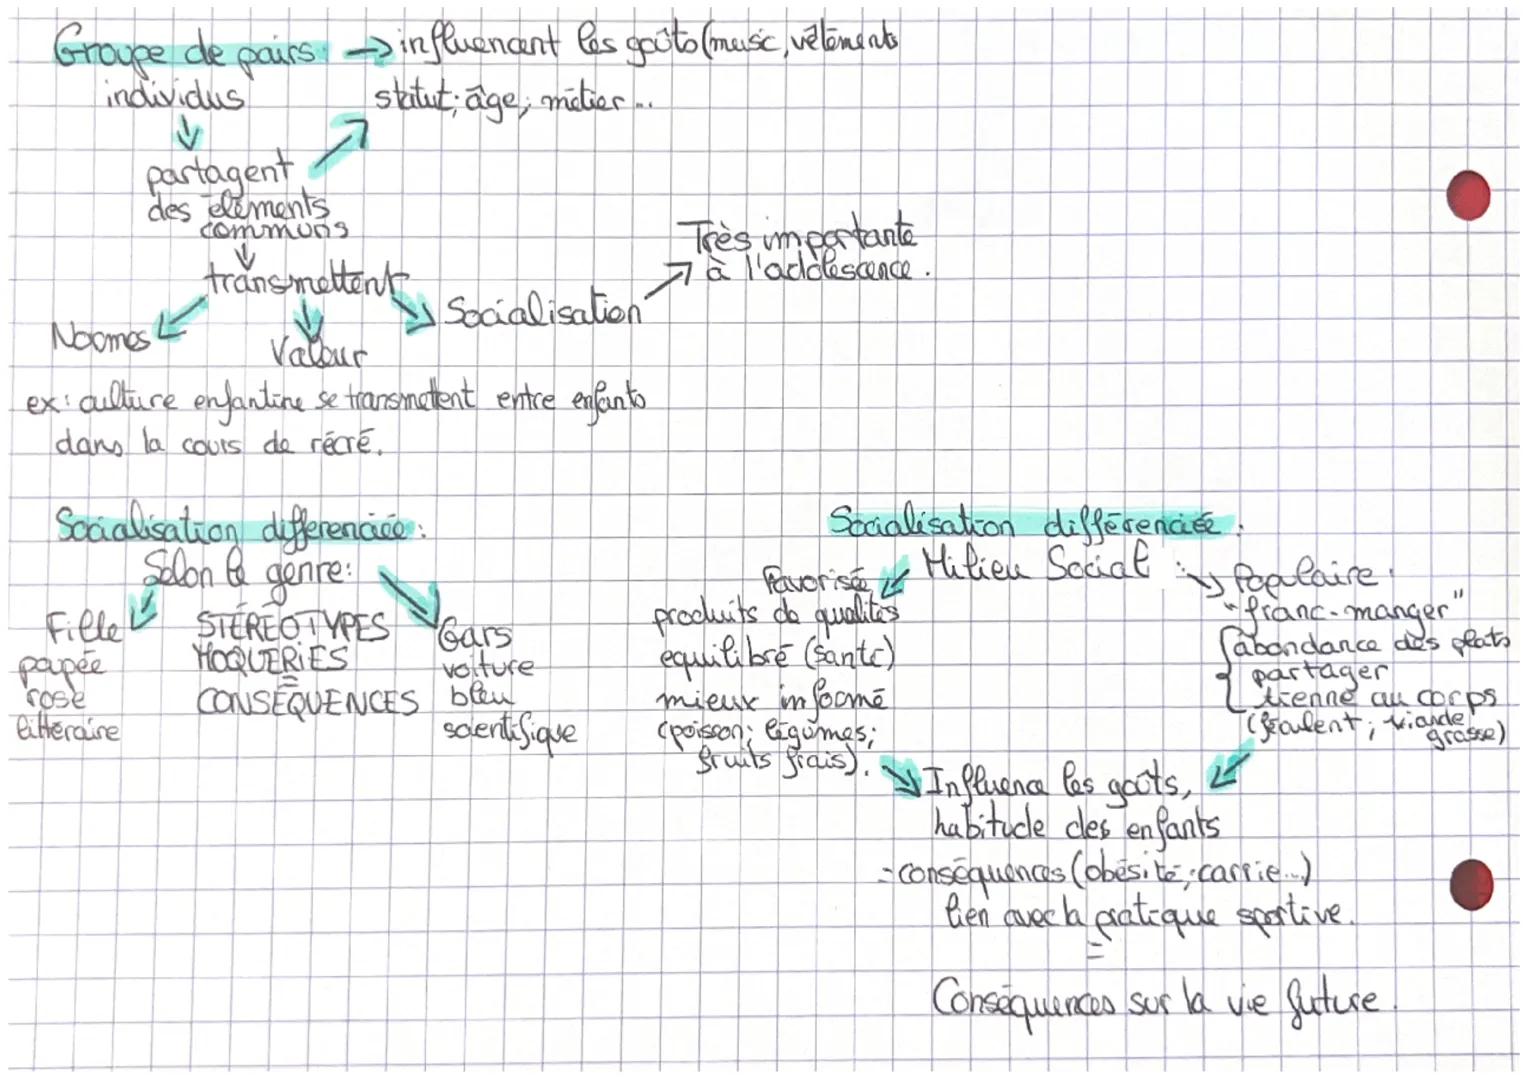 Groupe de pairs : → influencent les goûts (music, vêtements
individus
statut; âge; métier...
partagent
des éléments
communs
transmettent
Très importante
à l'adolescence.
Socialisation
Normes
Valeur
ex: culture enfantine se transmettent entre enfants
dans la cours de récré.
Socialisation differenciée :
Selon le genre:
Fille
poupée
rose
littéraire
STÉRÉOTYPES
MOQUERIES
=
CONSÉQUENCES
Gars
voiture
bleu
scientifique
Socialisation différenciée :
Milieu Social :
Favorisé
produits de qualités
equilibré (santé)
mieux informé
(poisson; légumes;
fruits frais).
Populaire :
"franc-manger"
abondance des plats
partager
tienne au corps
(féculent; viande
grasse)
Influence les goûts,
habitude des enfants
- conséquences (obésité; carrie...)
lien avec la pratique sportive.
=
Conséquences sur la vie future.